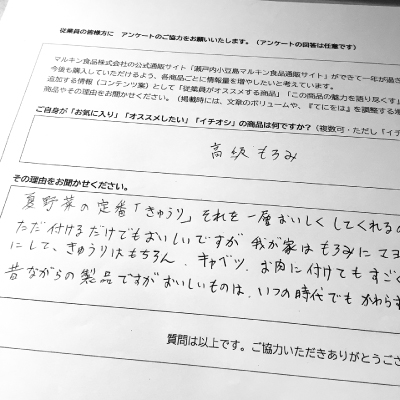 従業員の皆様方に　アンケートのご協力をお願いいたします。（アンケートの回答は任意です）
マルキン食品株式会社の公式通販サイト「瀬戸内小豆島マルキン食品通販サイト」ができて一年が過ぎ
今後も購入していただけるよう、各商品ごとに情報量を増やしたいと考えています。
追加する情報（コンテンツ案）として「従業員がオススメする商品」「この商品の魅力を語り尽くす」
商品やその理由をお聞かせください。（掲載時には、文章のボリュームや、『てにをは』を調整する
ご自身が「お気に入り」「オススメしたい」「イチオシ」の商品は何ですか？（複数可・ただし「イチ
高級もろみ
その理由をお聞かせください。
夏野菜の定番「きゅうり」それを一層おいしくしてくれるの
ただ付けるだけでもおいしいですが我が家はもろみにマヨ
にして、きゅうりはもちろん、キャベツ、お肉に付けてもすごく
昔ながらの製品ですがおいしいものは、いつの時代でもかわらず
質問は以上です。ご協力いただきありがとうござ